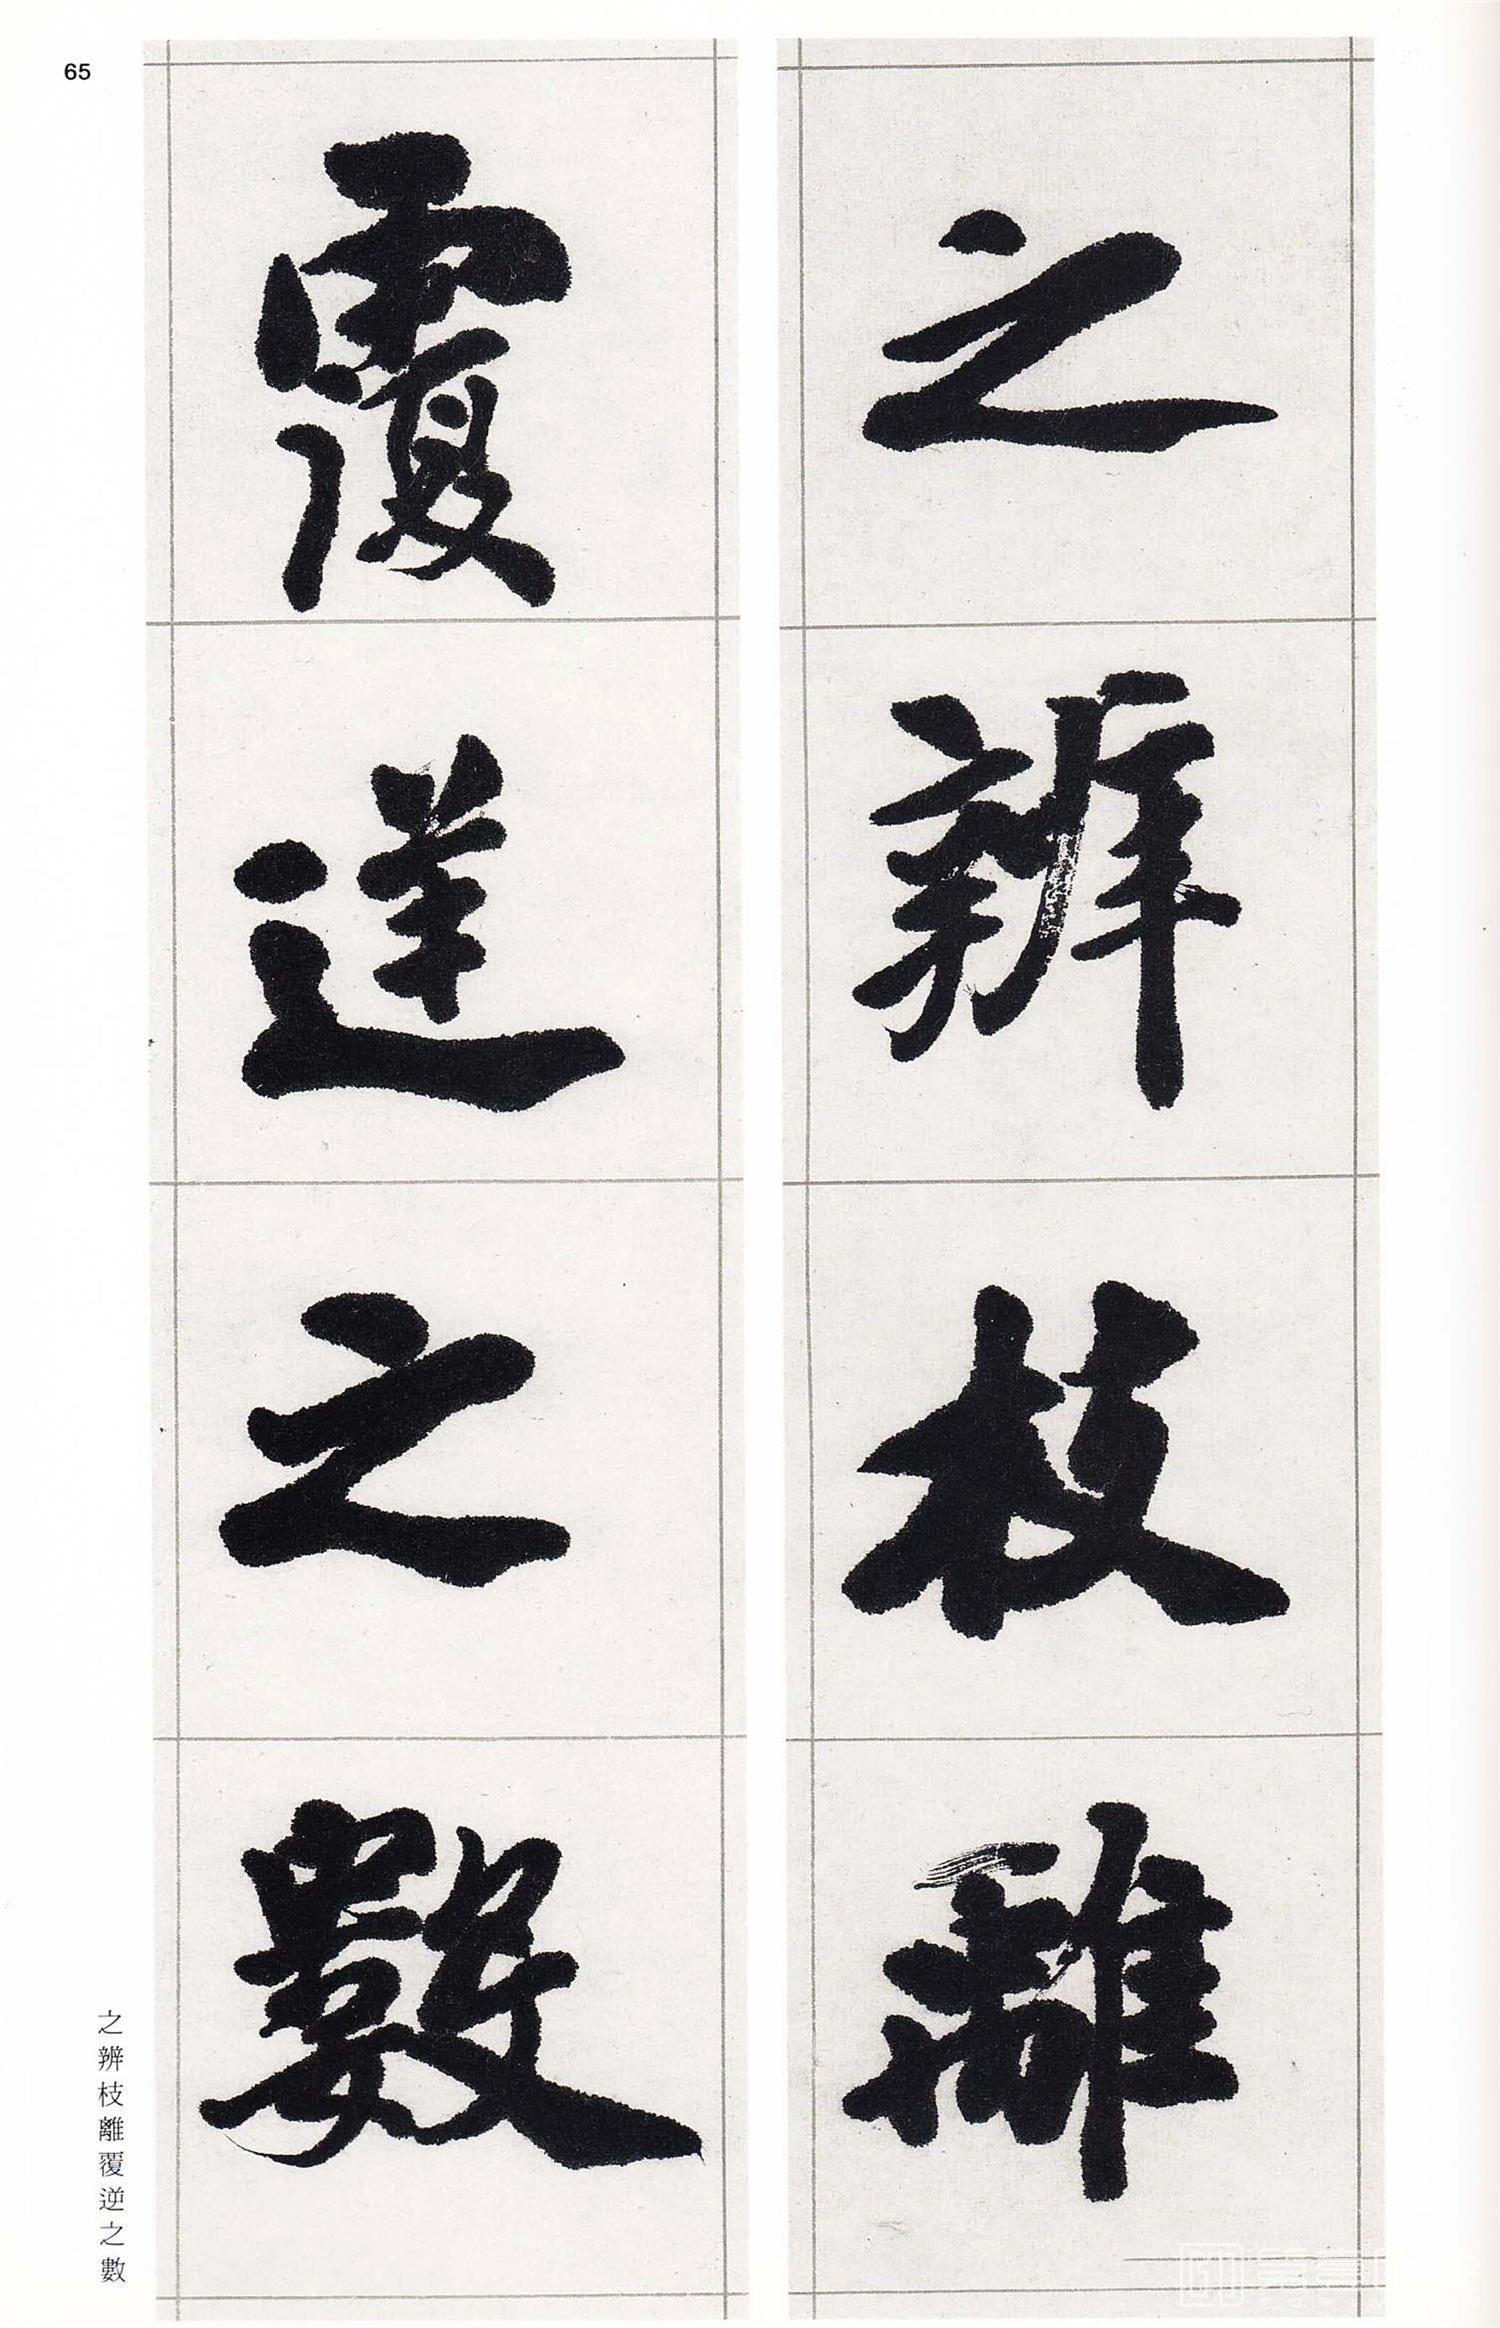 65
之辨枝離
覆逆之數
之辨枝離覆逆之數